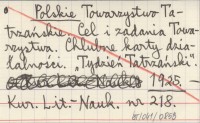 Polskie Towarzystwo Ta-
trzańskie. Cel i zadania Towa-
rzystwa. Chlubne karty dzia-
łalności. "Tydzień Tatrzański".
1925
Kur. Lit-Nauk. nr 218.